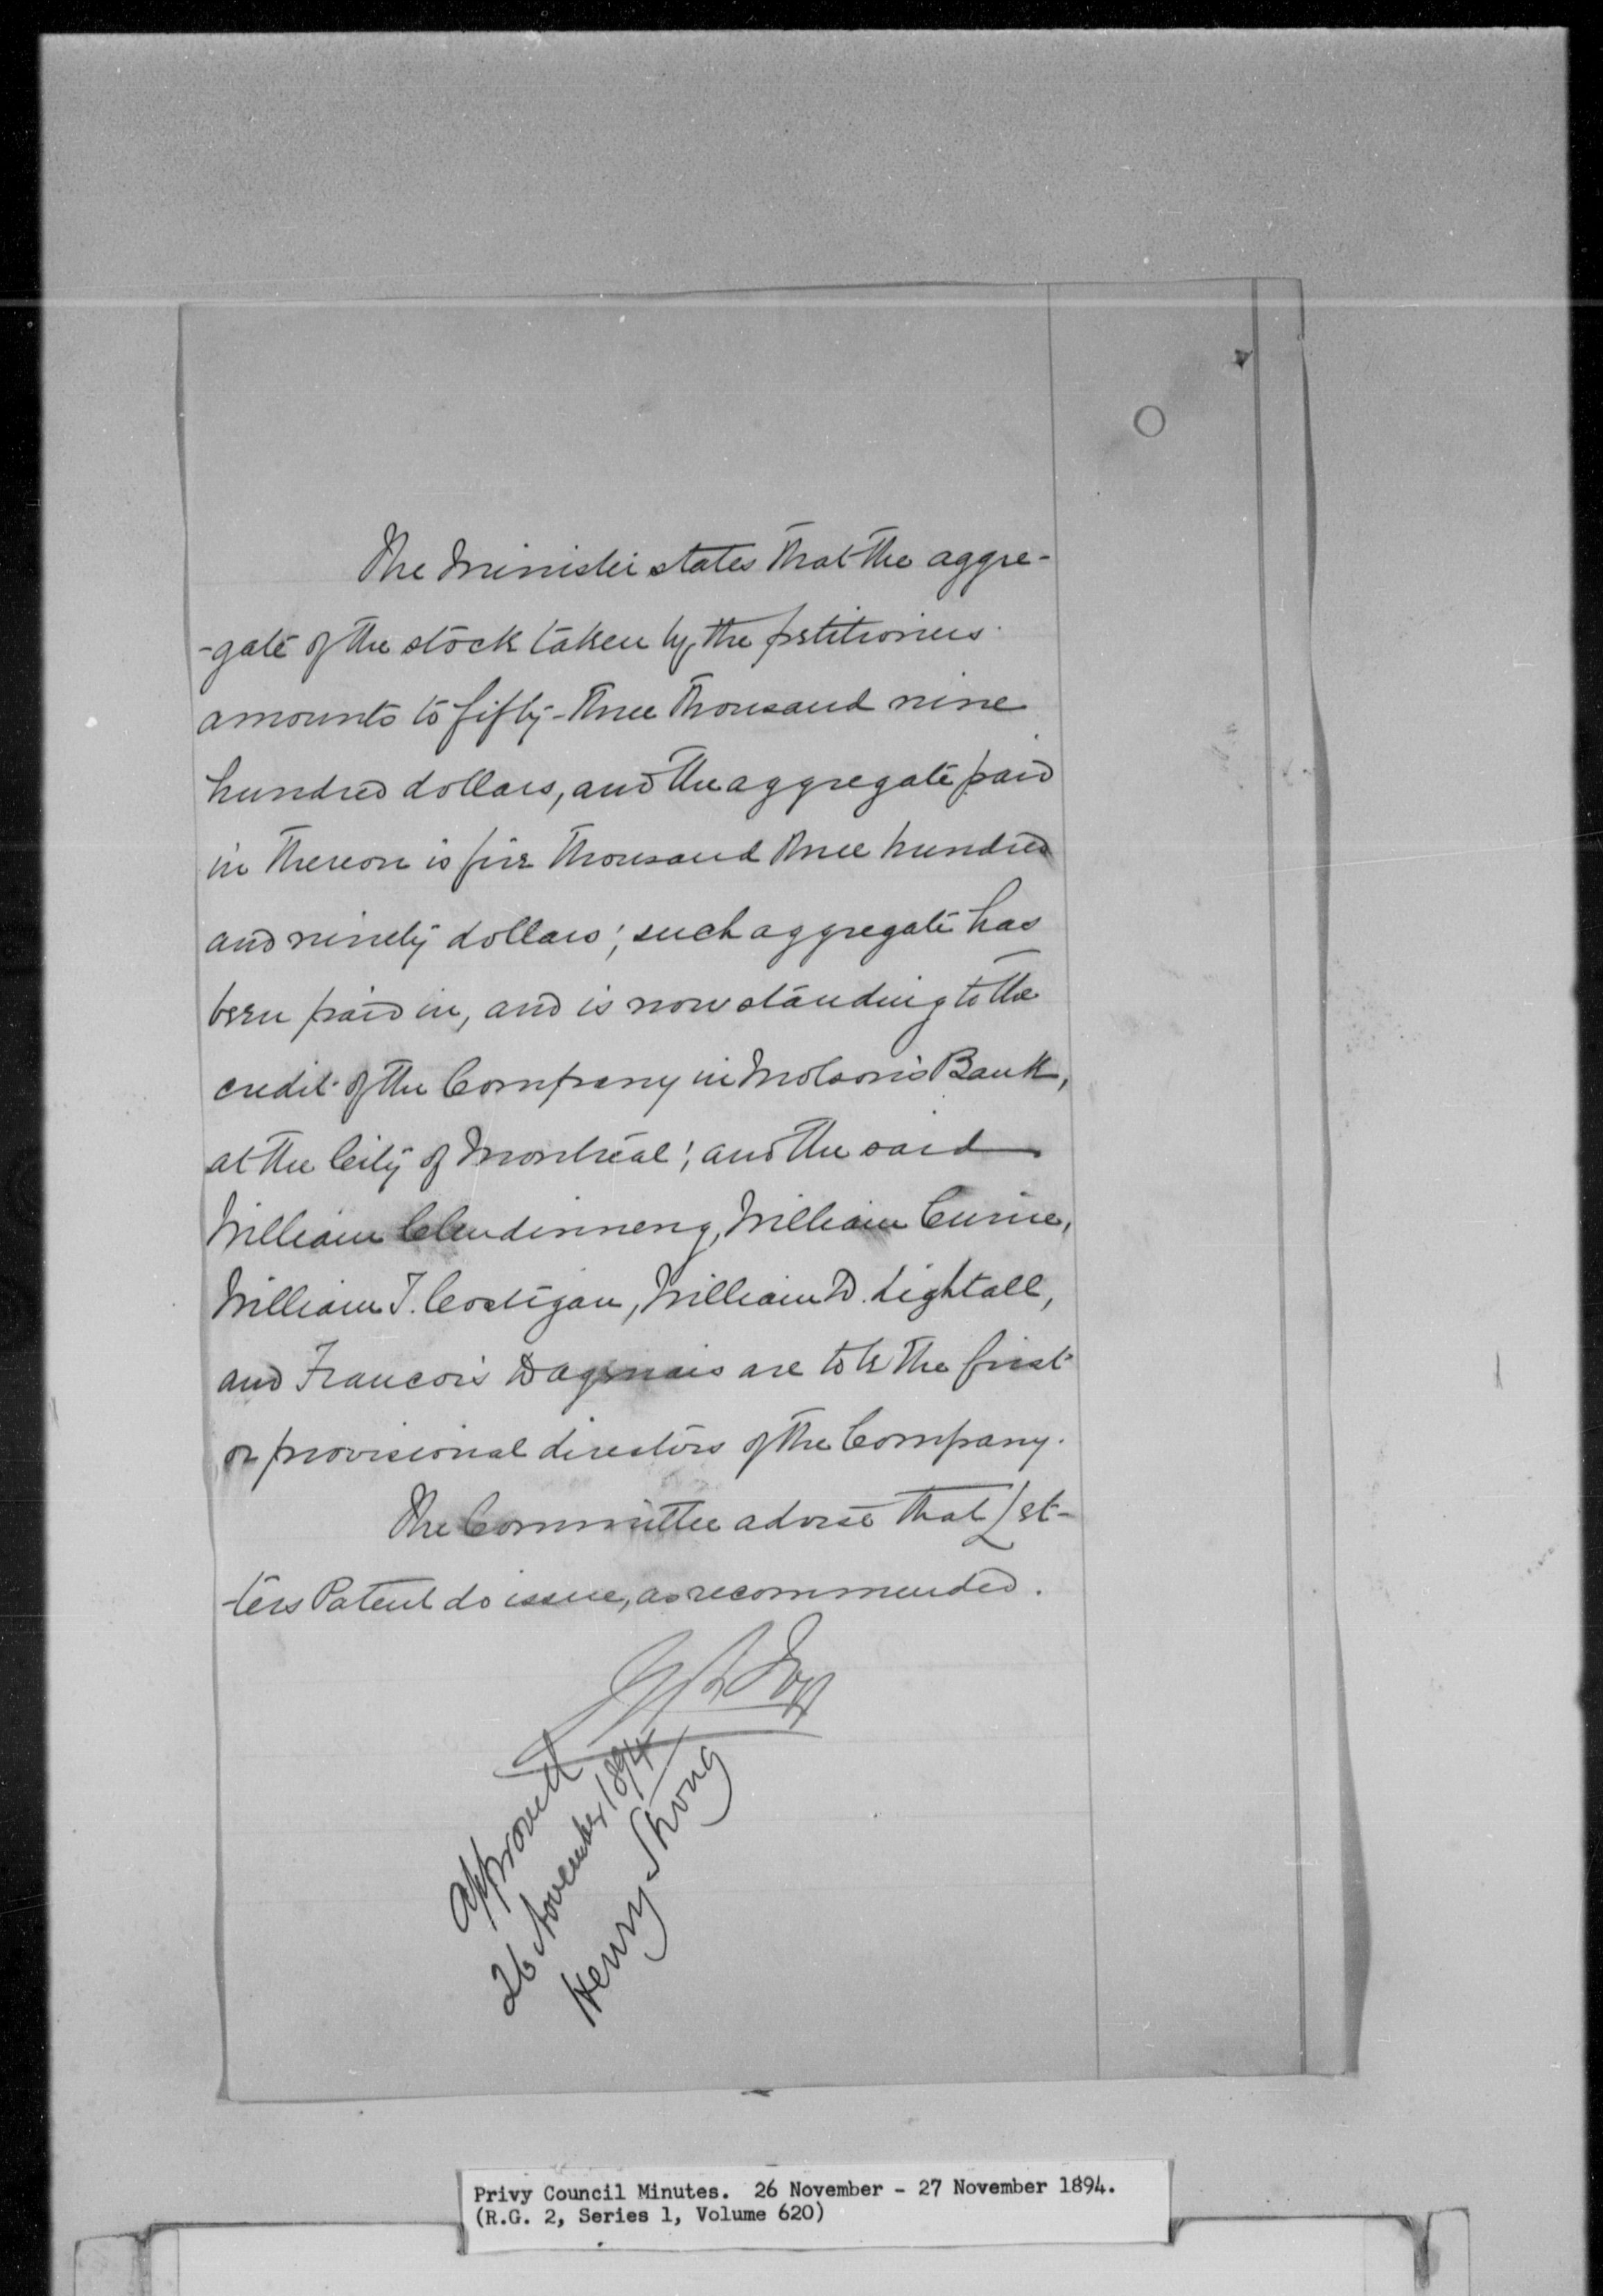 The Minister states that the aggre-
-gate of the stock taken by the petitioners
amounts to fifty-three thousand nine
hundred dollars, and the aggregate paid
in thereon is five thousand three hundred
and ninety dollars; such aggregate has
been paid in, and is now standing to the
credit of the Company in Molson's Bank,
at the City of Montreal; and the said
William Clendinneng, William Currie,
William T. Costigan, William D. Lightall,
and Francois Dagenais are to be the first
or provisional directors of the Company.
The Committee advise that Let-
-ters Patent do issue, as recommended.
Approved
26 November 1894
Henry Strong
Privy Council Minutes. 26 November - 27 November 1894.
(R.G. 2, Series 1, Volume 620)